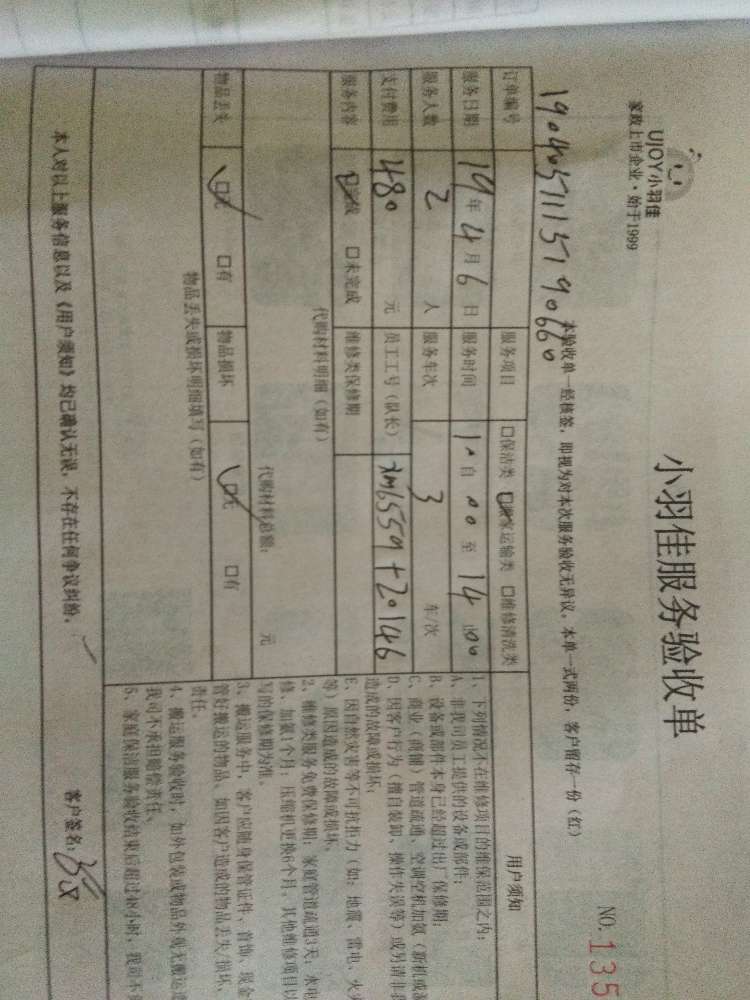 UJOY小羽佳
家政上市企业·始于1999
小羽佳服务验收单
NO. 135
本验收单一经核签,即视为对本次服务验收无异议。本单一式两份,客户留存一份(红)
订单编号 服务项目 □保洁类 ☑搬家运输类 □维修清洗类
服务日期 19年4月6日 服务时间 10:00至14:00
服务人数 2人 服务车次 3 车/次
支付费用 480 元 员工工号(队长) xm6559+20146
服务内容 ☑完成 □未完成 维修类保修期
代购材料明细(如有)
代购材料总额: 元
物品丢失 ☑无 □有 物品损坏 ☑无 □有
物品丢失或损坏明细填写(如有)
用户须知
1、下列情况不在维修项目的维保范围之内:
A、非我司员工提供的设备或部件;
B、设备或部件本身已经超过出厂保修期;
C、商业(商铺)管道疏通、空调空机加氨(新机或
D、因客户行为(擅自装卸、操作失误等)或另请非
造成的故障或损坏;
E、因自然灾害等不可抗拒力(如:地震、雷电、火
等)原因造成的故障或损坏。
2、维修类服务免费保修期:家庭管道疏通3天;水电
修、加氨1个月;压缩机更换6个月。其他维修项目以
写的保修期为准。
3、搬运服务中,客户应随身保管证件、首饰、现金
管好搬运的物品。如因客户造成的物品丢失、损坏、
责任。
4、搬运服务验收时,如外包装或物品外观无搬运
我司不承担赔偿责任。
5、家庭保洁服务验收结束后超过48小时,我司不
本人对以上服务信息以及《用户须知》均已确认无误,不存在任何争议纠纷。
客户签名: